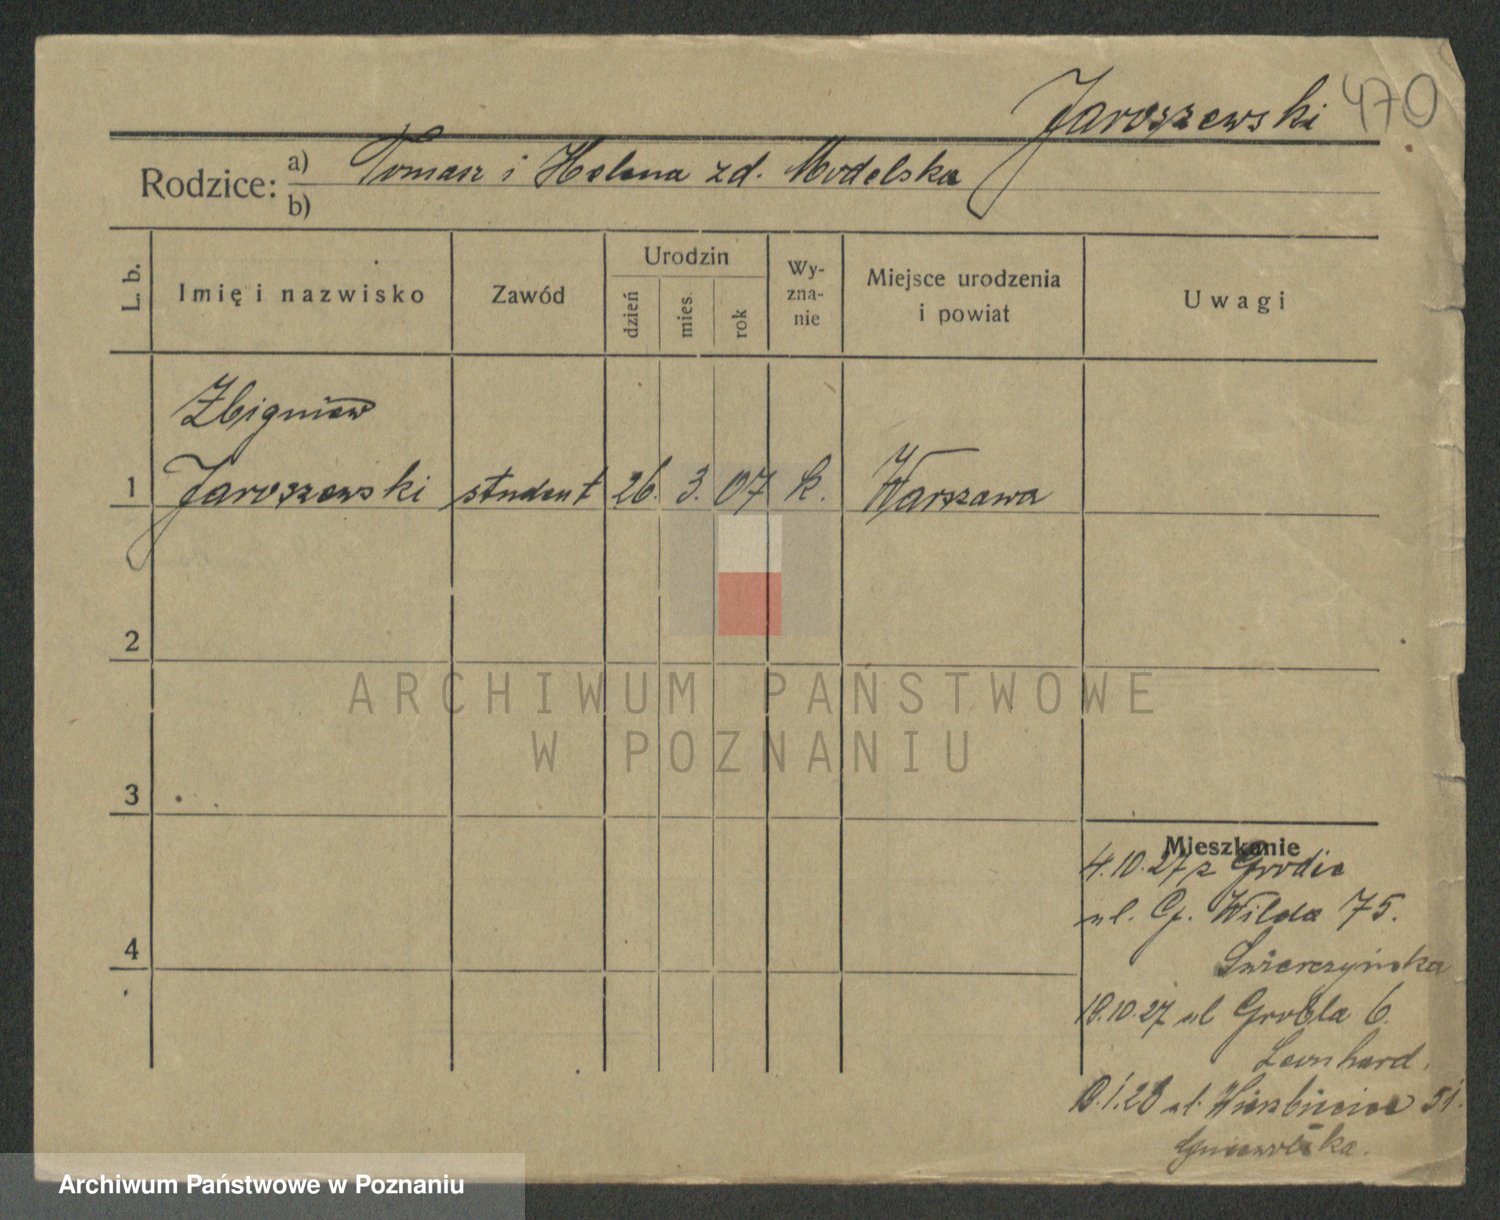 Jaroszewski 470
Rodzice: a) Tomasz i Helena zd. Modelska
b)
L. b.
Imię i nazwisko
Zawód
Urodzin
dzień
mies.
rok
Wy-
zna-
nie
Miejsce urodzenia
i powiat
Uwagi
Zbigniew
1 Jaroszewski student 26. 3. 07 k. Warszawa
2
ARCHIWUM PAŃSTWOWE
W POZNANIU
3
Mieszkanie
4.10.27 z Grodźca
ul. G. Wilda 75.
Świerczyńska
4
18.10.27 ul Grobla 6
Leonhard.
ul. Wierzbięcice 51.
Archiwum Państwowe w Poznaniu